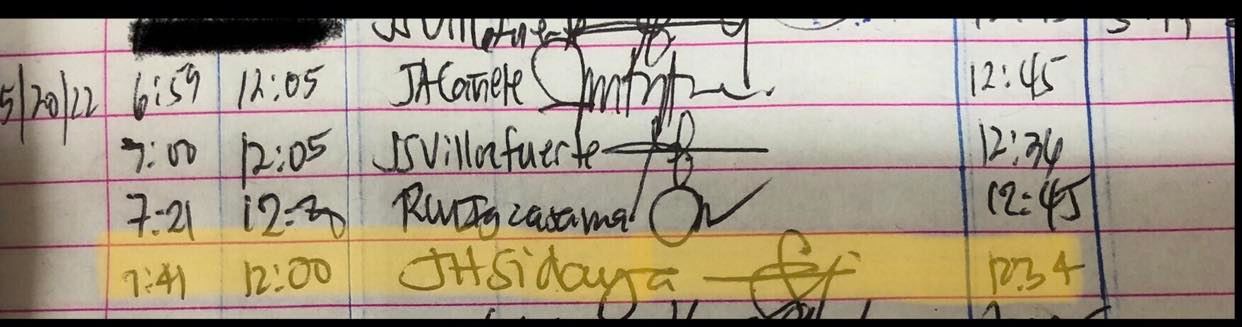 JSVillafuerte
5/20/22 6:59 12:05 JACañete 12:45
7:00 12:05 JSVillafuerte 12:34
7:21 12:20 12:45
7:41 12:00 JHSidaya 12:34